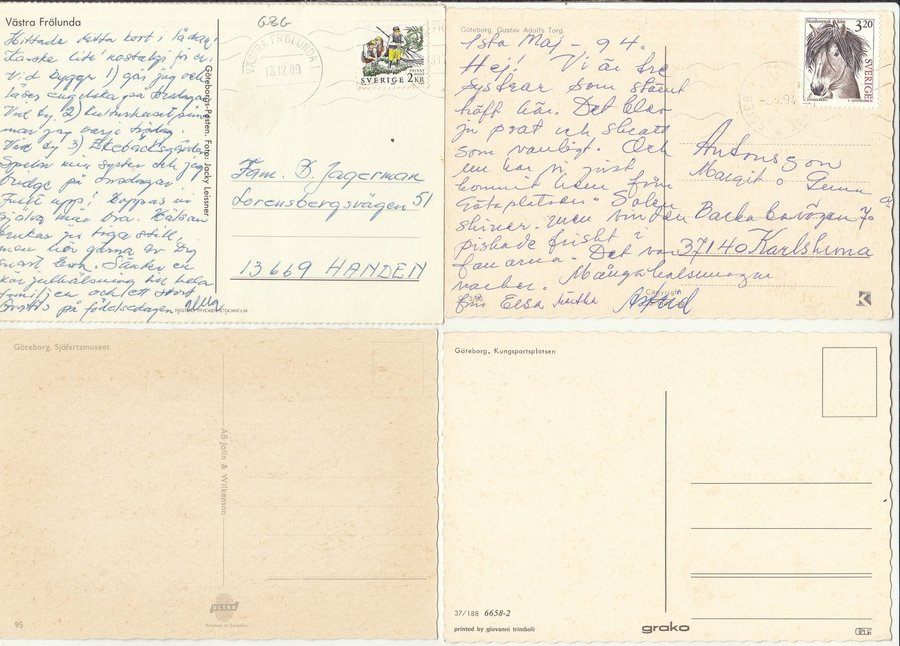 Västra Frölunda
GRG
VÄSTRA FRÖLUNDA 1
13.12.89
SVERIGE 2 KR
Hittade detta kort i lådan!
Kanske lite' nostalgi för er.
Vid bygge 1) går jag och
läser engelska på tisdagar
Vid by. 2) Kulturhuset
mar jag varje tisdag.
Vid by. 3)
Spelar min syster och jag
bridge på onsdagar.
Fullt upp! Hoppas ni
själva mår bra. Kajsan
brukar ju tiga still,
men hör gärna av dig
snart Eva. Sänker en
kär julhälsning till hela
familjen och ett stort
Grattis på födelsedagen
Göteborgs-Posten. Foto: Jacky Leissner
Fam. B. Jagerman
Lorensbergsvägen 51
13669 HANDEN
Göteborg. Gustav Adolfs Torg.
Nordsvensk häst
3.20
SVERIGE
1sta Maj - 94.
Hej! Vi är tre
systrar som stämt
träff här. Det blir
ju prat och skratt
som vanligt. Och
nu har vi just
kommit hem från
Götaplatsen. Solen
skiner. men vinden
piskade friskt i
fanorna. Det var
vacker. Många hälsningar
från Elsa Märtha Astrid
Antonsson
Margit o Gunn
Backabovägen 70
37140 Karlskrona
Copyright
K
Göteborg. Sjöfartsmuseet
AB Jolin & Wilkenson
ULTRA
Printed in Sweden
95
Göteborg, Kungsportsplatsen
37/188 6658-2
printed by giovanni trimboli
grako